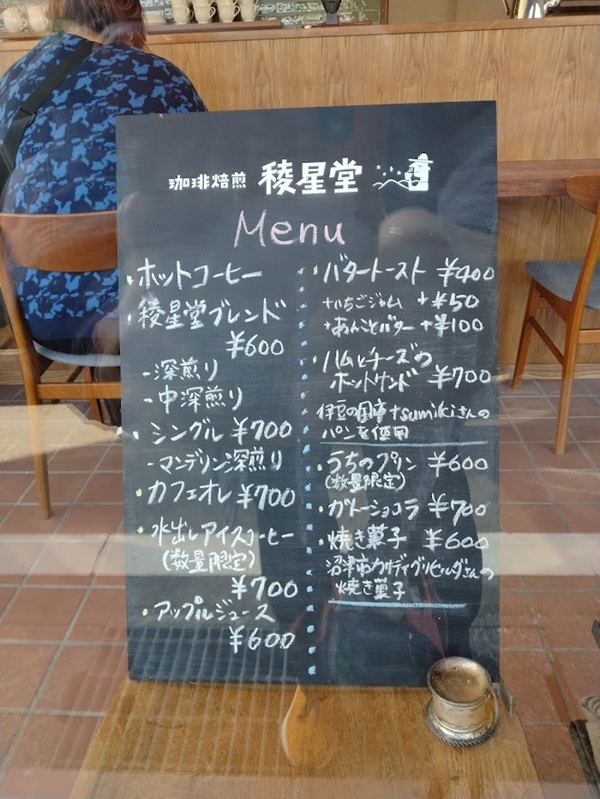 珈琲焙煎 稜星堂
Menu
・ホットコーヒー
・稜星堂ブレンド
¥600
-深煎り
-中深煎り
・シングル ¥700
-マンデリン深煎り
・カフェオレ ¥700
・水出しアイスコーヒー
(数量限定)
¥700
・アップルジュース
¥600
・バタートースト ¥400
+いちごジャム +¥50
+あんことバター +¥100
・ハムとチーズの
ホットサンド ¥700
伊豆の国市 tsumikiさんの
パンを使用
・うちのプリン ¥600
(数量限定)
・ガトーショコラ ¥700
・焼き菓子 ¥600
沼津市
焼き菓子